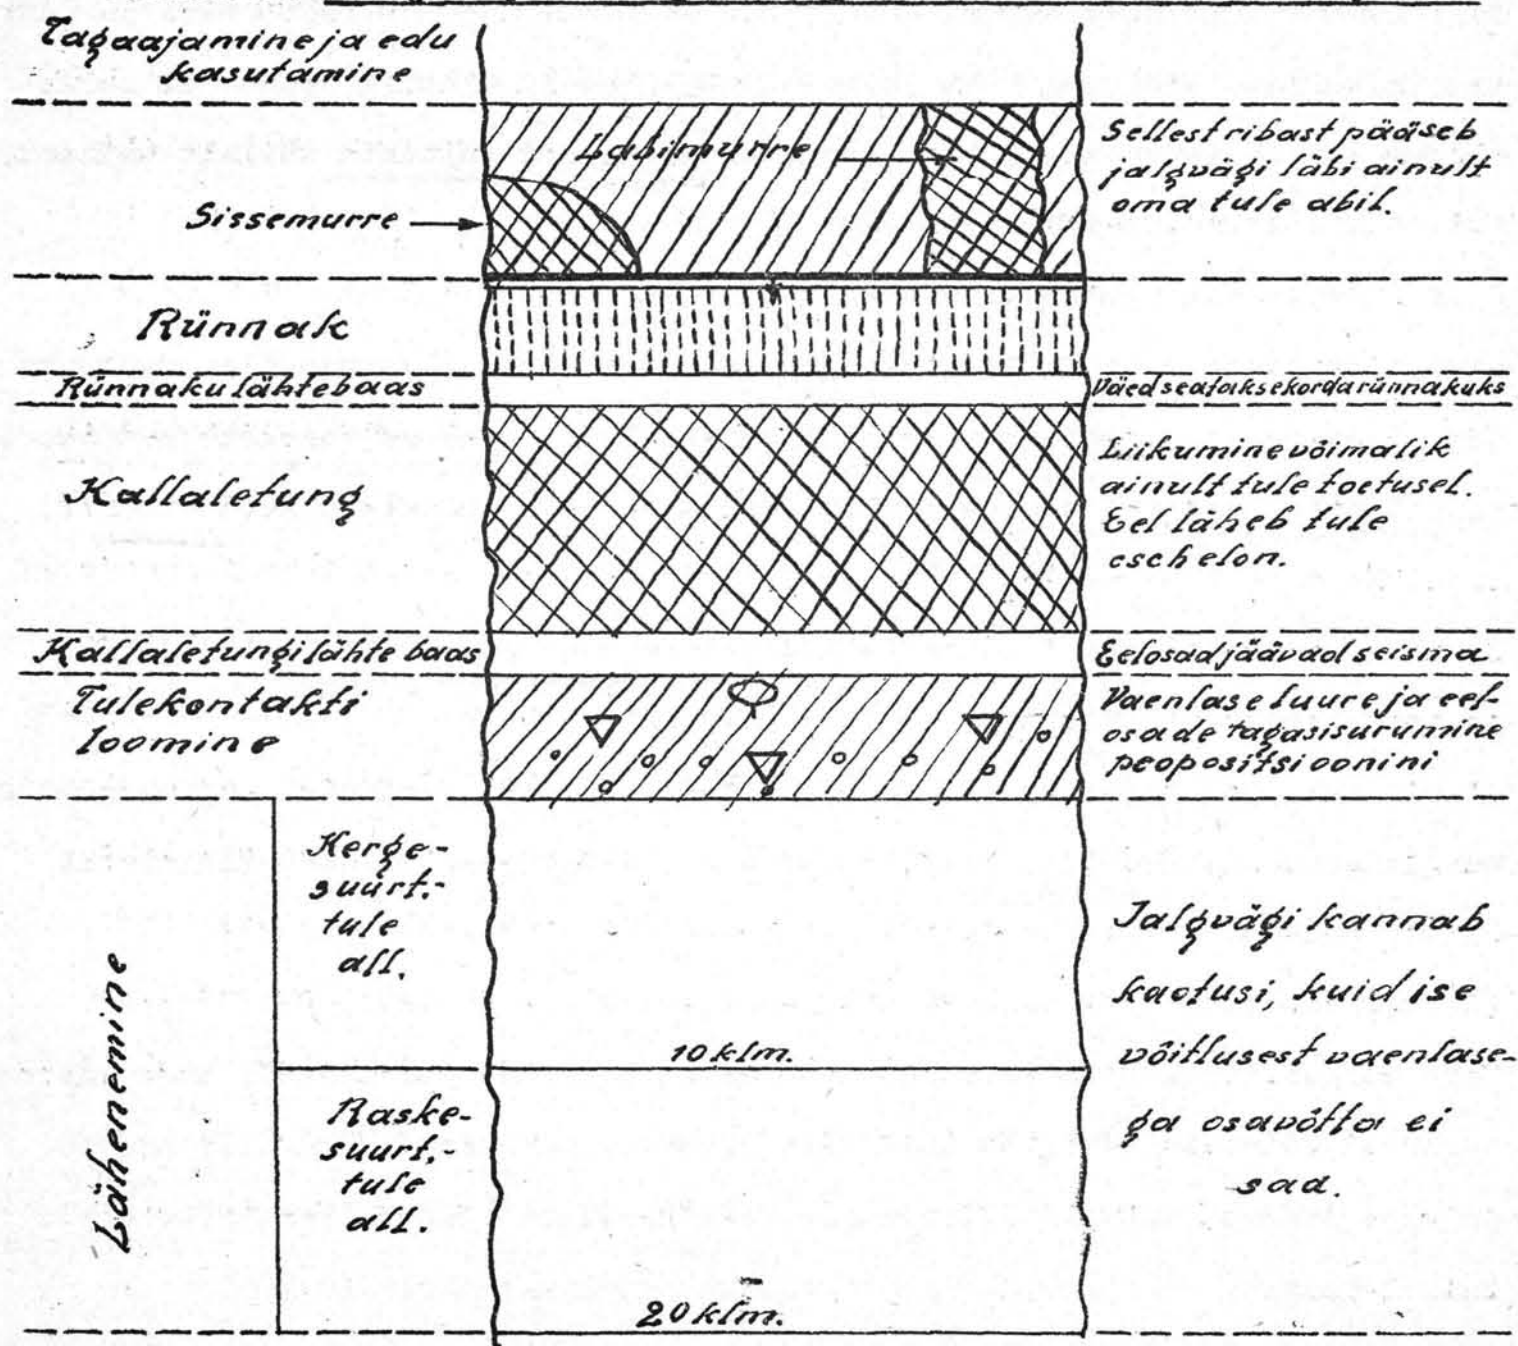 Tagaajamine ja edu
kasutamine
Läbimurre
Sellest ribast pääseb
jalgvägi läbi ainult
oma tule abil.
Sissemurre
Rünnak
Rünnaku lähtebaas
Väed seatakse korda rünnakuks
Kallaletung
Liikumine võimalik
ainult tule toetusel.
Eel läheb tule
eschelon.
Kallaletungi lähte baas
Eelosad jäävad seisma
Tulekontakti
loomine
Vaenlase luure ja eel-
osade tagasisurumine
peopositsioonini
Lähenemine
Kerge-
suurt.-
tule
all.
10 klm.
Raske-
suurt.-
tule
all.
20 klm.
Jalgvägi kannab
kaotusi, kuid ise
võitlusest vaenlase-
ga osavõtta ei
saa.